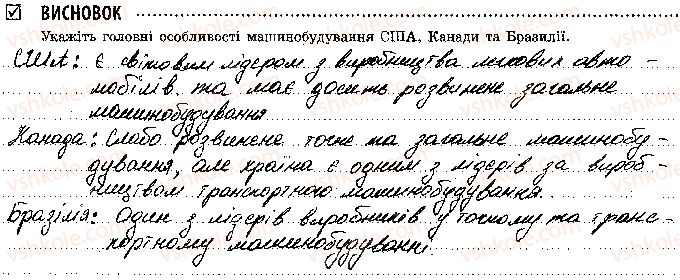 ВИСНОВОК
Укажіть головні особливості машинобудування США, Канади та Бразилії.
США: Є світовим лідером з виробництва легкових авто-
мобілів та має досить розвинене загальне
машинобудування
Канада: Слабо розвинене точне та загальне машинобу-
дування, але країна є одним з лідерів за вироб-
ництвом транспортного машинобудування.
Бразілія: Один з лідерів виробників у точному та транс-
портному машинобудуванні.